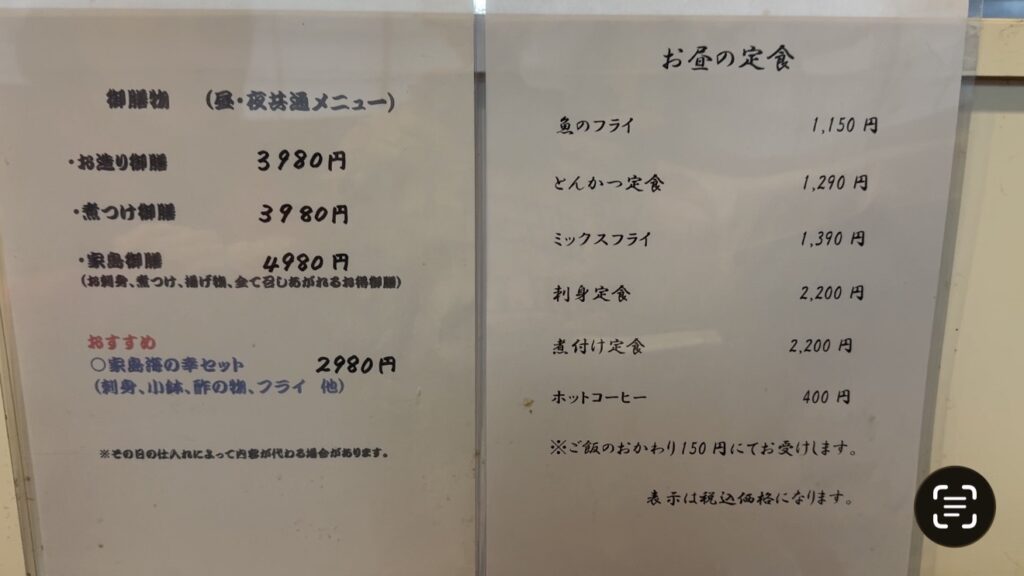 御膳物 （昼・夜共通メニュー）
・お造り御膳 3980円
・煮つけ御膳 3980円
・家島御膳 4980円
（お刺身、煮つけ、揚げ物、全て召しあがれるお得御膳）
おすすめ
〇家島海の幸セット 2980円
（刺身、小鉢、酢の物、フライ 他）
※その日の仕入れによって内容が代わる場合があります。
お昼の定食
魚のフライ 1,150 円
とんかつ定食 1,290 円
ミックスフライ 1,390 円
刺身定食 2,200 円
煮付け定食 2,200 円
ホットコーヒー 400 円
※ご飯のおかわり150 円にてお受けします。
表示は税込価格になります。